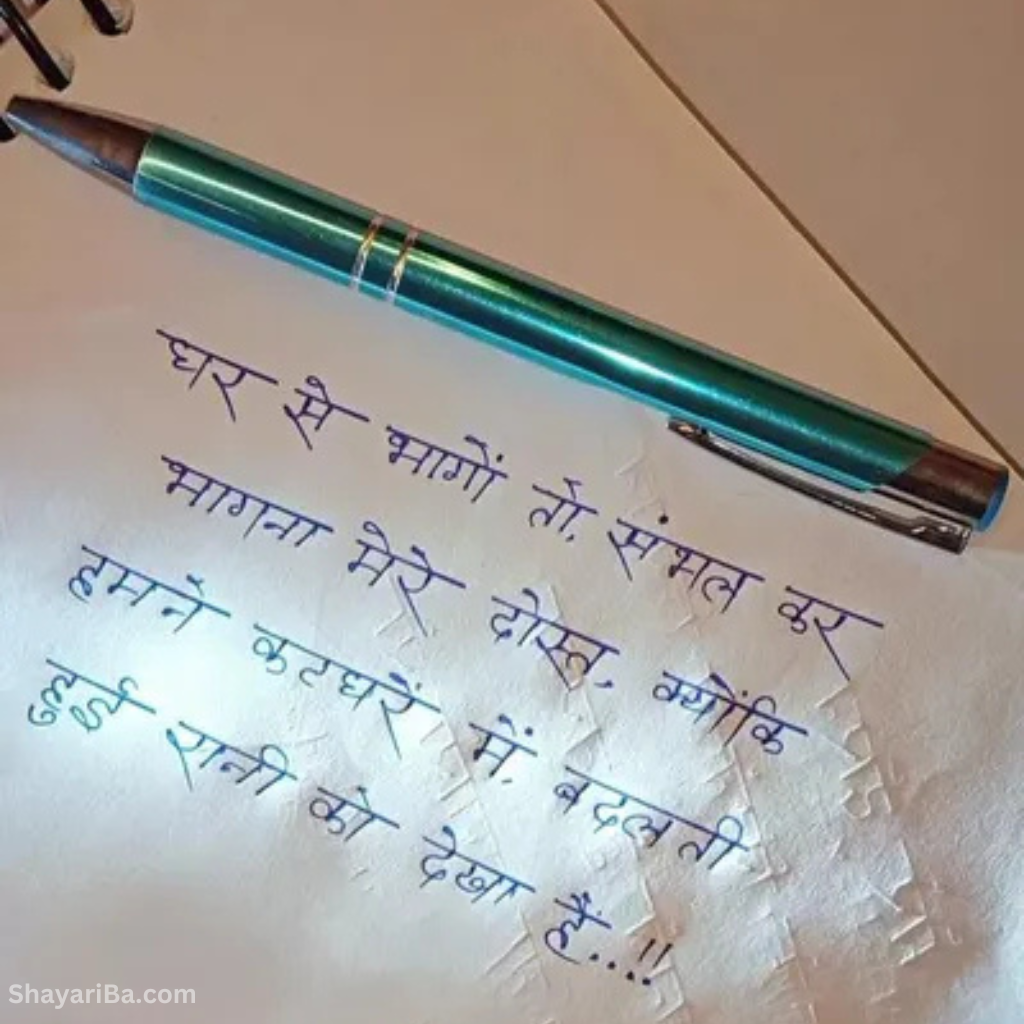 घर से भागों तो, संभल कर
भागना मेरे दोस्त, क्योंकि
हमने कटघरें में, बदलती
हुई रानी को देखा हैं...!!
ShayariBa.com